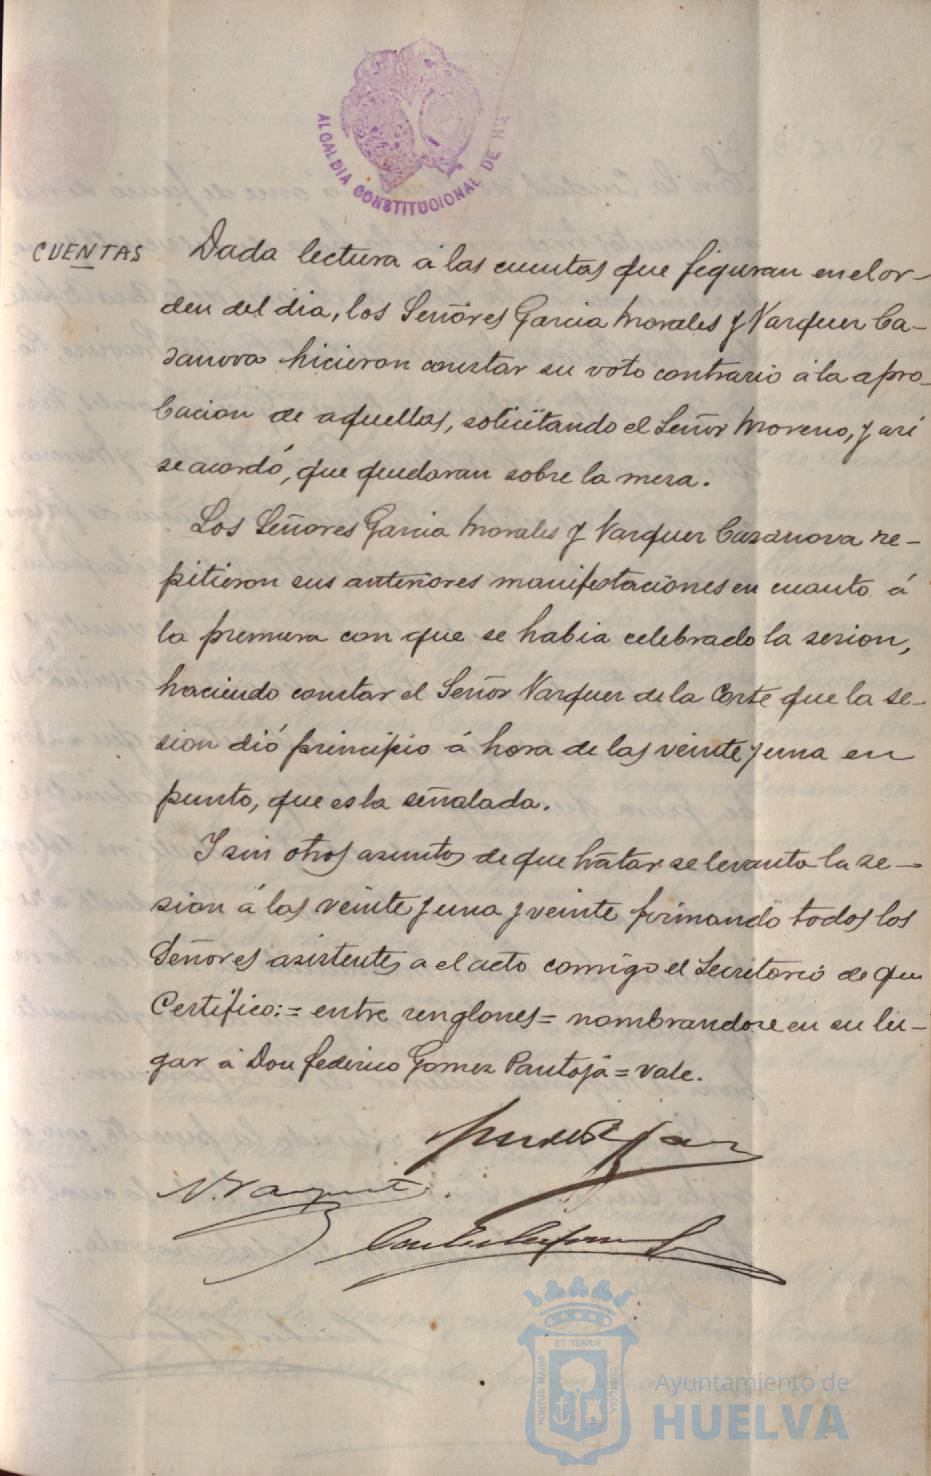 ALCALDIA CONSTITUCIONAL DE HU
CUENTAS
Dada lectura á las cuentas que figuran en el or-
den del dia, los Señores Garcia Morales y Vazquez Ca-
sanova hicieron constar su voto contrario á la apro-
bacion de aquellas, solicitando el Señor Moreno, y asi
se acordó, que quedaran sobre la mesa.
Los Señores Garcia Morales y Vazquez Casanova re-
pitieron sus anteriores manifestaciones en cuanto á
la premura con que se habia celebrado la sesion,
haciendo constar el Señor Vazquez de la Corte que la se-
sion dió principio á hora de las veinte y una en
punto, que es la señalada.
Y sin otros asuntos de que tratar se levanto la se-
sion á las veinte y una y veinte firmando todos los
Señores asistentes a el acto comigo el Secretario de que
Certifico:= entre renglones= nombrandose en su lu-
gar á Don Federico Gomez Pantoja= vale.
ET TERRÆ
PORTUS MARIS
CUSTODIA
Ayuntamiento de
HUELVA